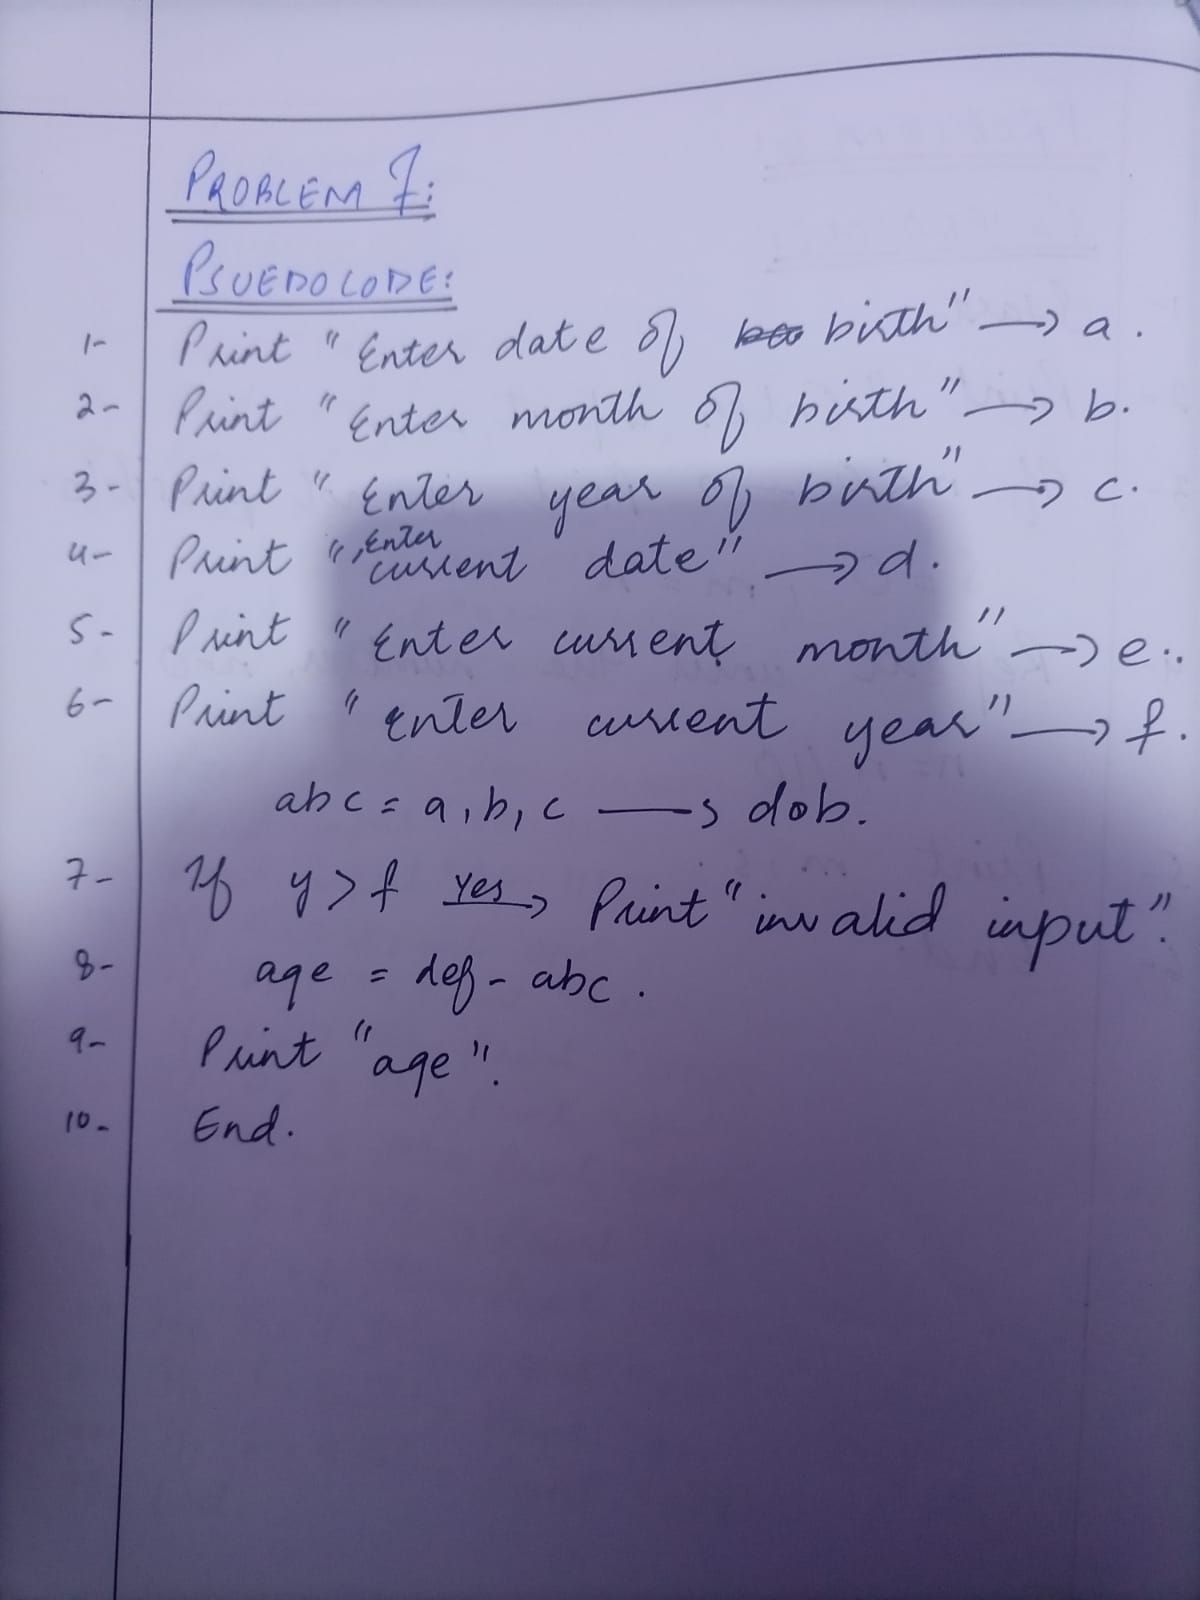 PROBLEM 7:
PSUEDOCODE:
1- Print "Enter date of birth" → a.
2- Print "Enter month of birth" → b.
3- Print "Enter year of birth" → c.
4- Print "Enter current date" → d.
5- Print "Enter current month" → e.
6- Print "enter current year" → f.
abc = a, b, c → dob.
7- If y > f Yes → Print "invalid input".
8- age = def - abc.
9- Print "age".
10- End.